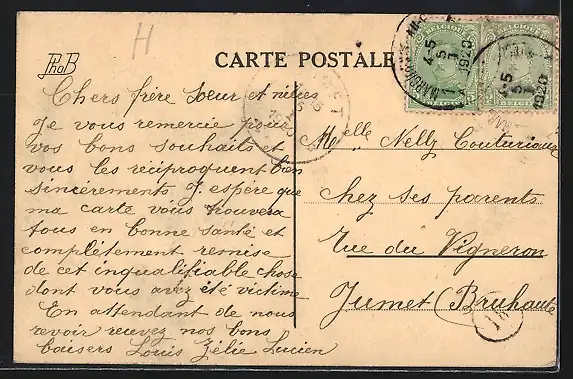 H
PhoB
CARTE POSTALE
BELGIQUE BELGIQUE
4-5
5
1
1920
4-5
5
1
1920
JUMET
1920
Chers frère Soeur et nièces
Je vous remercie pour
vos bons souhaits et
vous les réciproquent bien
sincèrements J. espère que
ma carte vous trouvera
tous en bonne santé et
complétement remise
de cet inqualifiable chose
dont vous avez été victime
En attendant de nous
revoir recevez nos bons
baisers Louis Zélie Lucien
Melle Nelly Couturiaux
chez ses parents
Rue du Vigneron
Jumet (Bruhaute
16